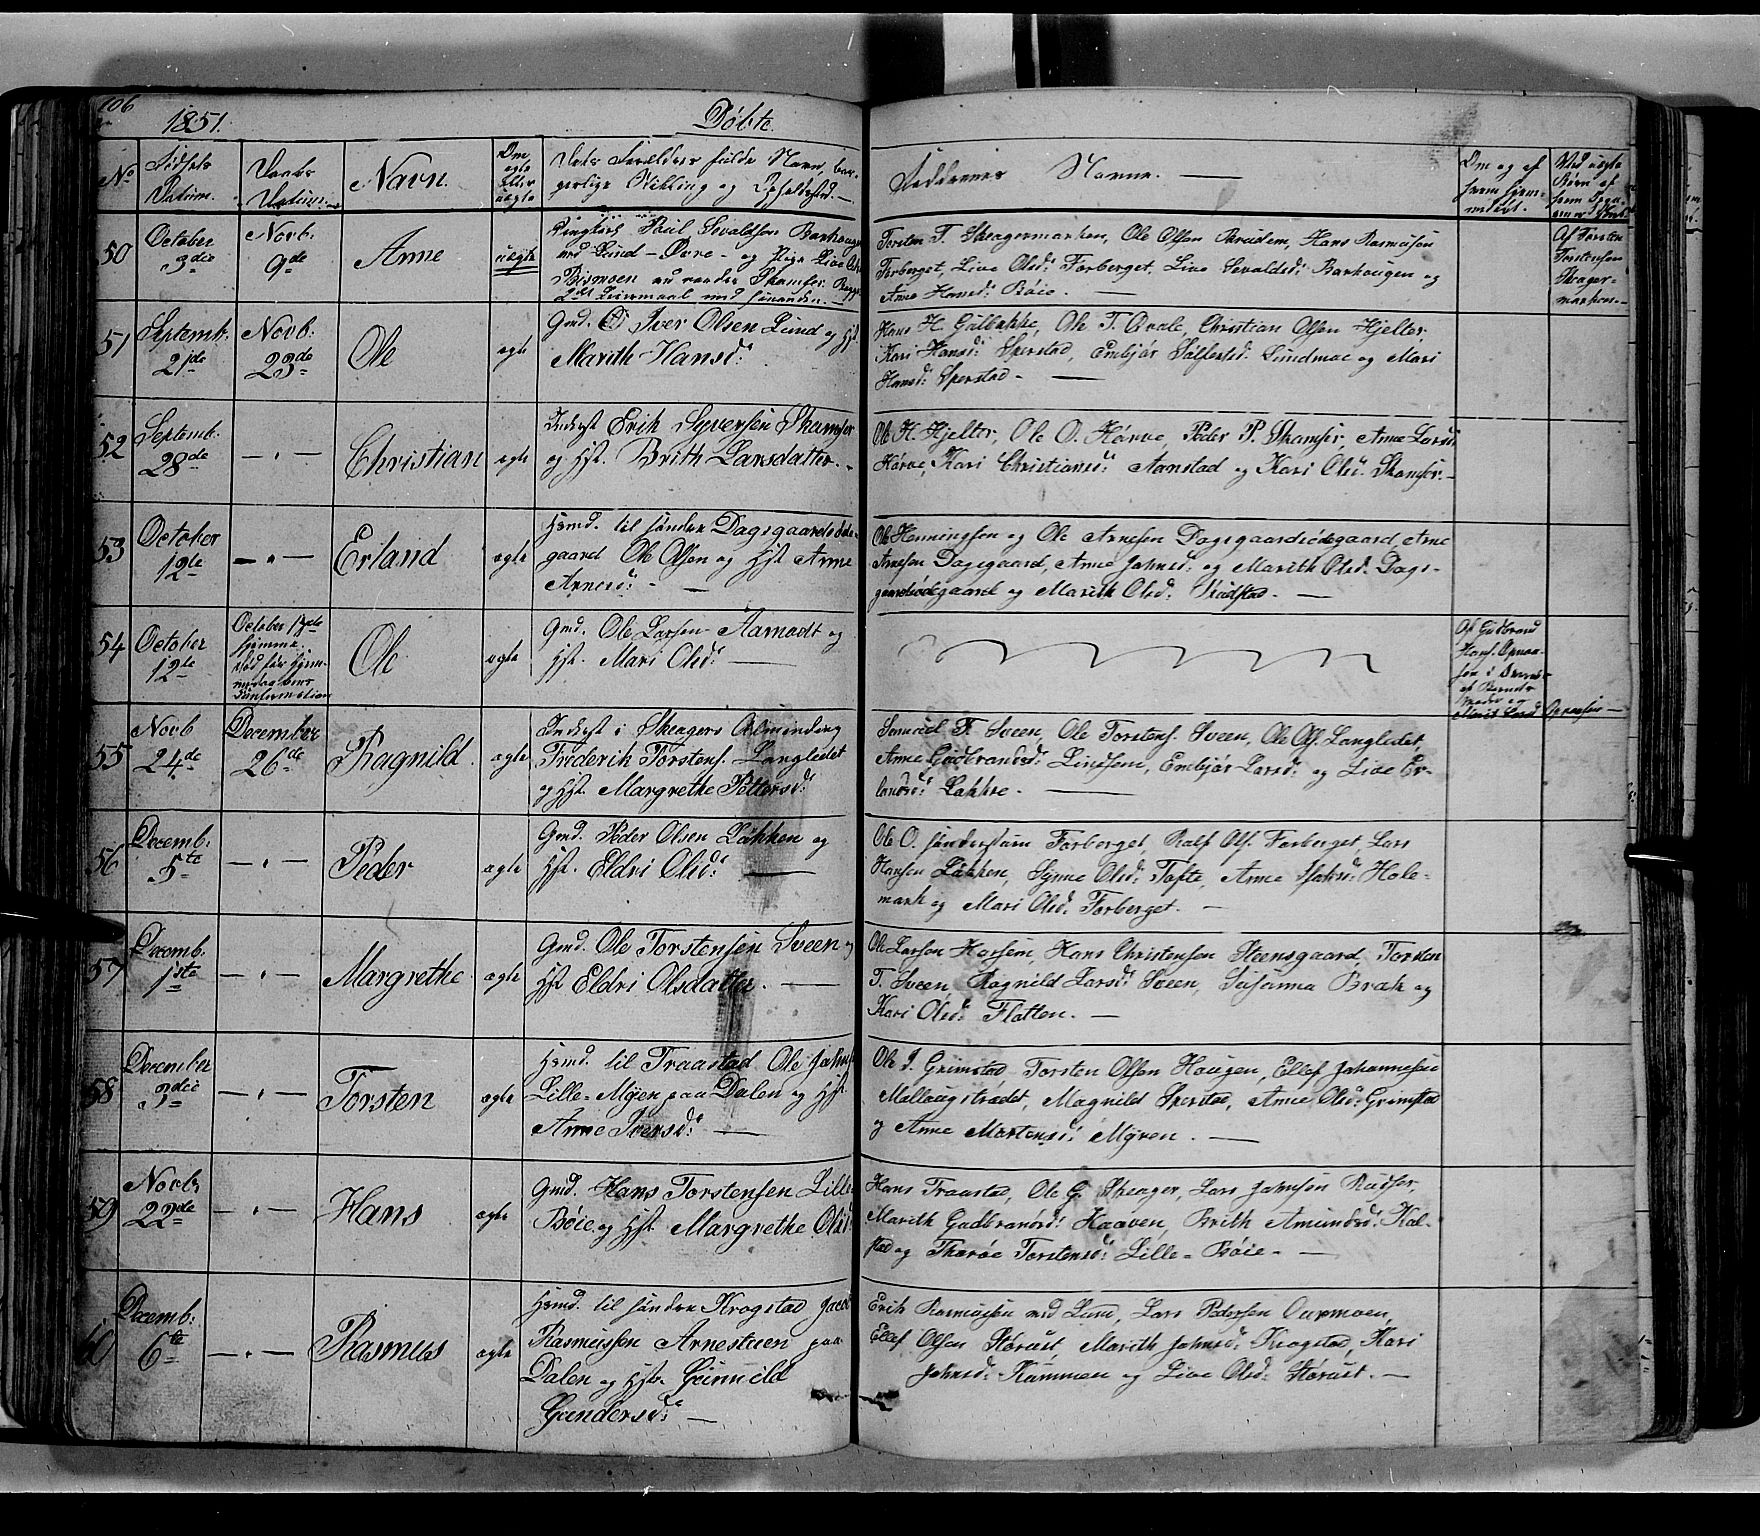 106
1851.
Døbte.
No
Fødsels Datum.
Daabs Datum.
Navn.
Om ægte eller uægte
Dets Forældres fulde Navn, borgerlige Stilling og Opholdssted.
Faddernes Navne.
Om og af hvem hjemmedøbt.
Ved uægte Børn af hvem
50
October 3die
Novb: 9de
Anne
uægte
Poul Sevaldsen Barhougen
nedre Lund - Øvre - og Pige Live
Bismoen nu søndre Skamsar
2det Leiermaal med hinanden.
Torsten T. Skeagermarken, Ole Olsen Brudem, Hans Rasmusen
Forberget, Live Olsd: Forberget, Live Sevaldsd: Barhougen og
Anne Hansd: Bøie.
Af Torsten
Torstensen
Skeager-
marken.
51
Septemb: 21de
Novb: 23de
Ole
ægte
Gmd. Iver Olsen Lund og Hst.
Marith Hansd:
Hans H. Gulbakke, Ole T. Qvale, Christian Olsen Hjeltar,
Kari Hansd: Sperstad, Embjør Lund og Mari
Hansd: Sperstad.
52
Septemb. 28de
Christian
ægte
Inderst Erik Syversen Skamsar
og Hst. Brith Larsdatter.
Ole H. Hjeltar, Ole O. Hårve, Peder P. Skamsar, Anne Larsd:
Hårve, Kari Christiansd: Aanstad og Kari Olsd: Skamsar.
53
October 12te
Erland
ægte
Hsmd. til søndre Dagsgaardsøde-
gaard Ole Olsen og Hst Anne
Arnesd:
Ole Henningsen og Ole Arnesen Dagsgaardsødegaard, Arne
Arnesen Dagsgaard, Anne Johnsd: og Marith Olsd: Dags-
gaardsødegaard og Marith Olsd:
54
October 12te
October 17de
hjemme
Ole
ægte
Gmd. Ole Larsen Aamodt og
Hst. Mari Olsd:
Af Gudbrand
Hans.
55
Novb 24de
December 26de
Ragnild
ægte
Inderst i Skeagers Almending
Friderik Torstens. Langledet
og Hst. Margrethe Pettersd:
Samuel T. Sveen, Ole Torstens. Sveen, Ole Ols. Langledet,
Anne Gudbrandsd: Lindsøe, Embjør Larsd: og Live Er-
landsd: Bakke.
56
Decemb. 5te
Peder
ægte
Gmd. Peder Olsen Løkken og
Hst. Eldri Olsd:
Ole O. Forberget, Rolf Ols. Forberget, Lars
Hansen Løkken, Synne Olsd: Tofte, Anne Johnsd: Hole-
mark og Mari Olsd: Forberget.
57
Decemb. 1ste
Margrethe
ægte
Gmd. Ole Torstensen Sveen og
Hst Eldri Olsdatter.
Ole Larsen Horsem, Hans Christensen Steensgaard, Torsten
T. Sveen, Ragnild Larsd: Sveen, Susanna Bræk og
Kari Olsd: Flatten.
58
December 3die
Torsten
ægte
Hsmd. til Traastad Ole Johns.
Lille-Myen paa Dalen og Hst
Anne Iversd:
Ole J. Grimstad, Torsten Olsen Haugen, Ellef Johannesen
Mallangstrædet, Magnild Sperstad, Anne Olsd: Grimstad
og Anne Mortensd: Myren.
59
Novb: 22de
Hans
ægte
Gmd. Hans Torstensen Lille-
Bøie og Hst. Margrethe Olsd:
Hans Traastad, Ole G. Skeager, Lars Johnsen Rudser,
Marith Gudbrandsd: Haaven, Brith Amundsd: Kal-
stad og Tharøe Torstensd: Lille-Bøie.
60
Decemb: 6te
Rasmus
ægte
Hsmd. til søndre Krogstad Jacob
Rasmussen Arnestuen paa
Dalen og Hst. Gunnild
Gundersd:
Erik Rasmusen ned Lund, Lars Pedersen Aurmoen,
Ellef Olsen Størust, Marith Johnsd: Krogstad, Kari
Johnsd: Kummen og Live Olsd: Størust.